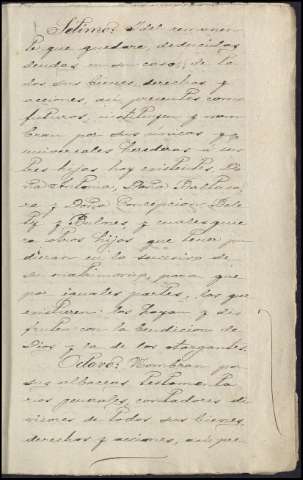 Setimo: Y del remanen-
te que quedare, deducidas
deudas en su caso, de to
dos sus bienes, derechos y
acciones, asi presentes como
futuros, instituyen y nom
bran por sus unicas y
universales herederas a sus
tres hijas hoy existentes, Do
ña Antonia, Doña Baltasa-
ra y Doña Concepcion
y y cualesquie
ra otros hijos que tener pu
dieran en lo sucesivo de
su matrimonio, para que
por iguales partes, los que
existieren los hayan y dis
fruten con la bendicion de
Dios y la de los otorgantes.
Octavo: Nombran por
sus albaceas testamenta
rios generales, contadores di
visores de todos sus bienes,
derechos y acciones, asi pre